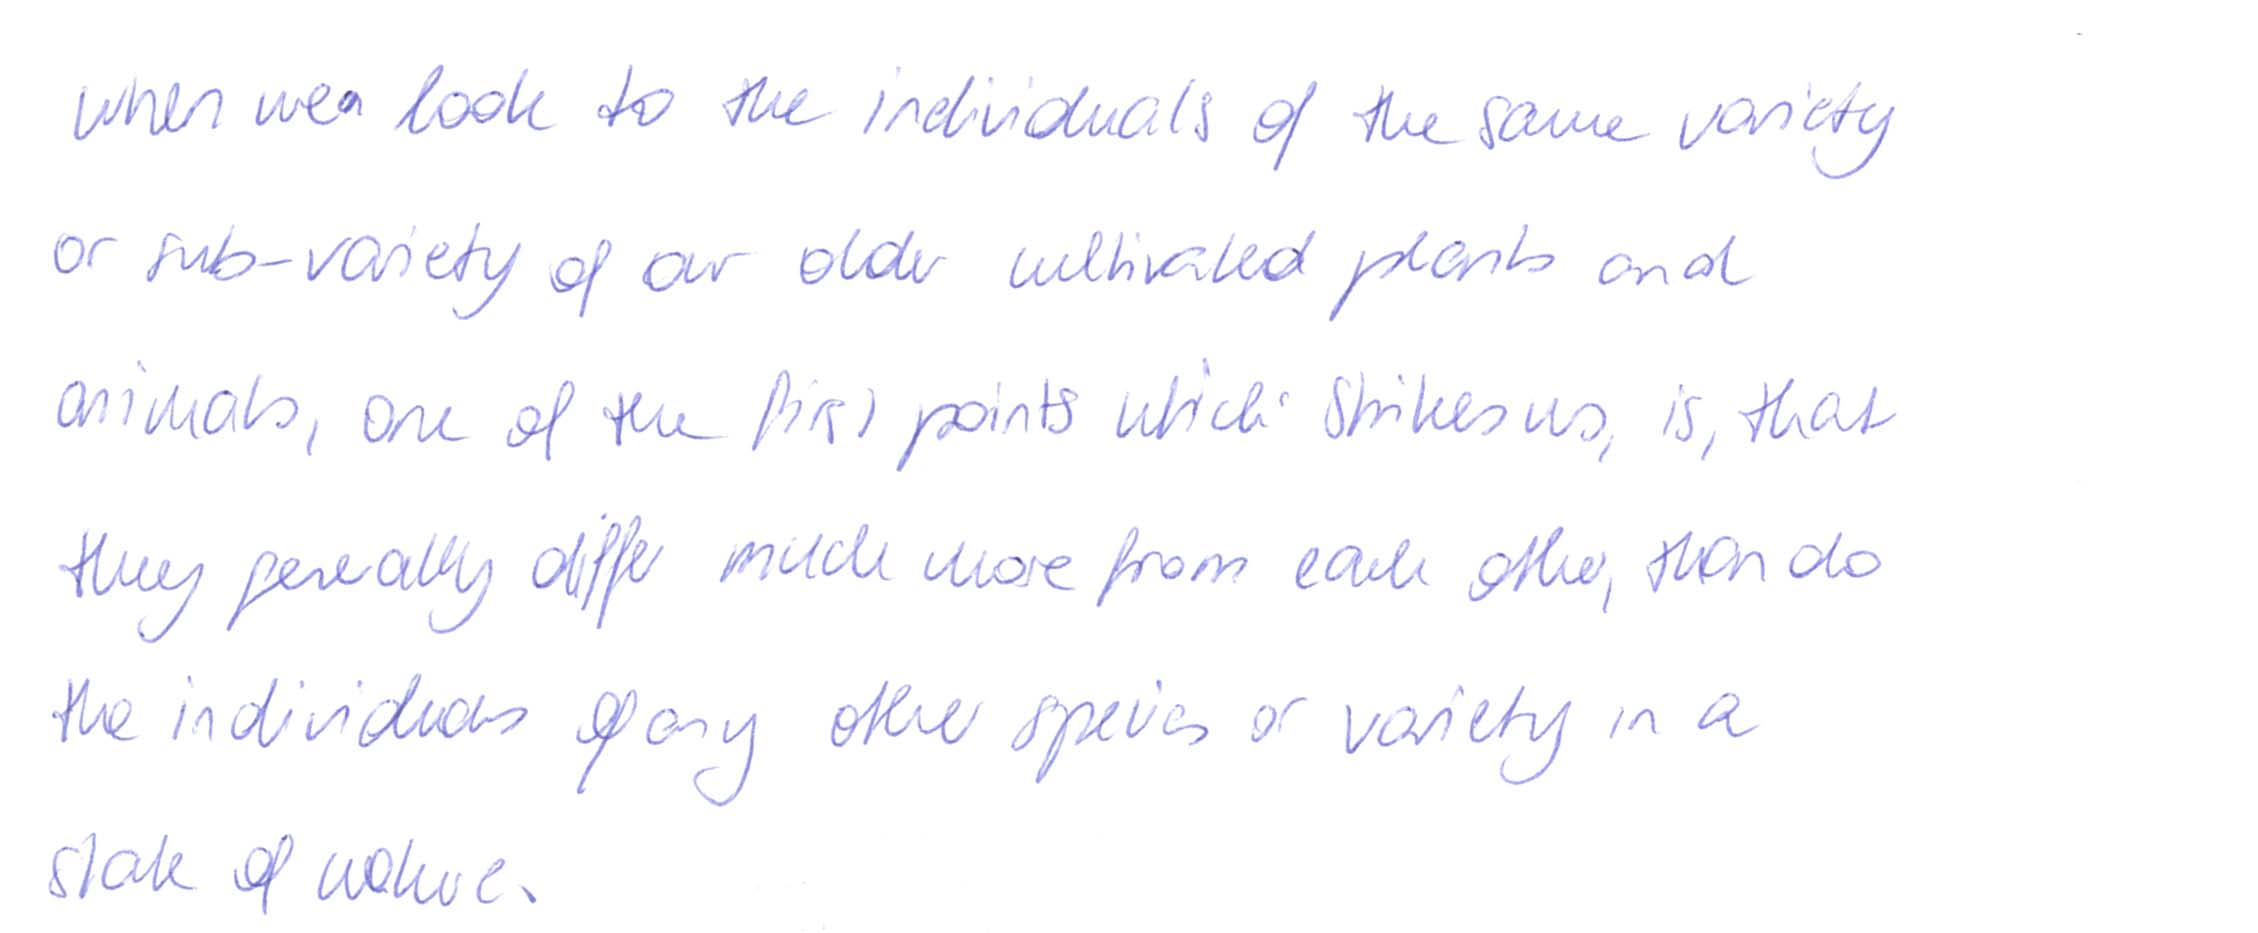 when we look to the individuals of the same variety
or sub-variety of our older cultivated plants and
animals, one of the first points which strikes us, is, that
they generally differ much more from each other, than do
the individuals of any other species or variety in a
state of nature.